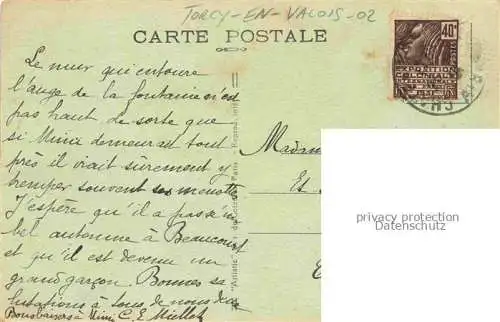 TORCY-EN-VALOIS-02
CARTE POSTALE
Le mur qui entoure
l'auge de la fontaine n'est
pas haut. De sorte que
si Mimi demeurait tout
près il irait sûrement y
tremper souvent ses menottes
J'espère qu'il a passé un
bel automne à Beaucourt
et qu'il est devenu un
grand garçon. Bonnes sa
lutations à tous de nous deux
Bons baisers à Mimi C. E. Miellet
40c
POSTES
EXPOSITION
COLONIALE
INTERNATIONALE
PARIS 1931
Et
privacy protection
Datenschutz